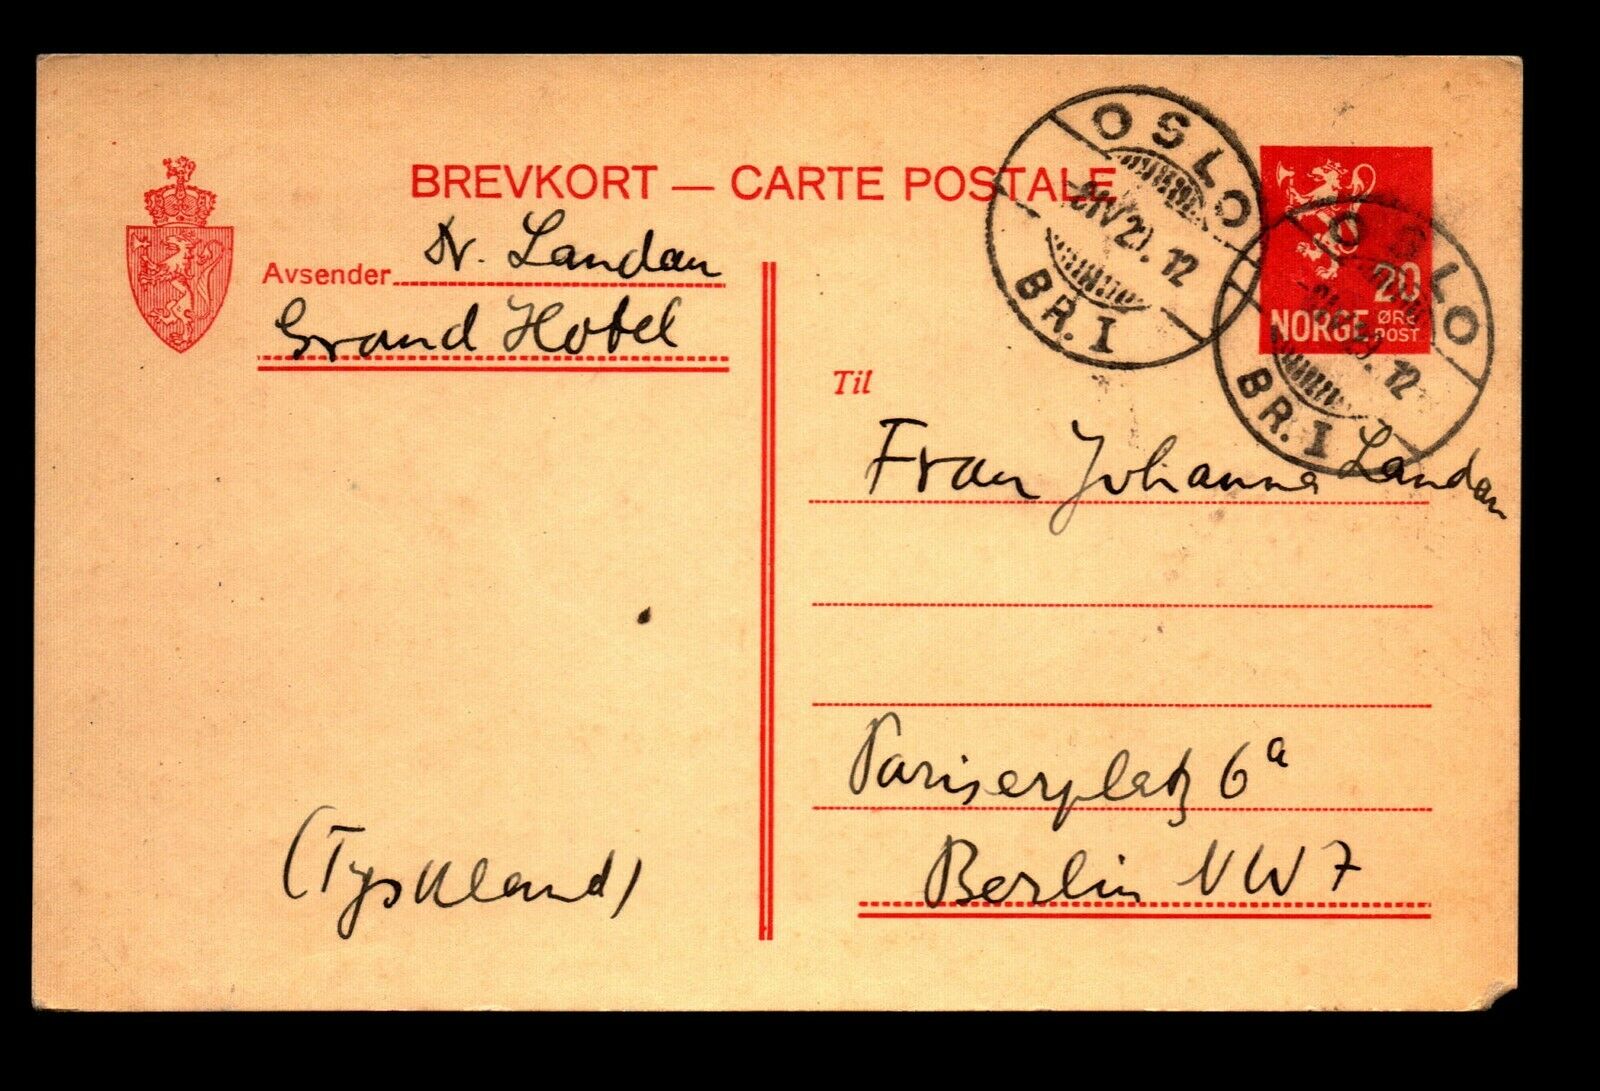 BREVKORT — CARTE POSTALE
Avsender Dr. Landau
Grand Hotel
OSLO
12
BR. I
20
NORGE ØRE
POST
OSLO
12
BR. I
Til
Frau Johanna Landau
Pariserplatz 6a
Berlin NW7
(Tyskland)